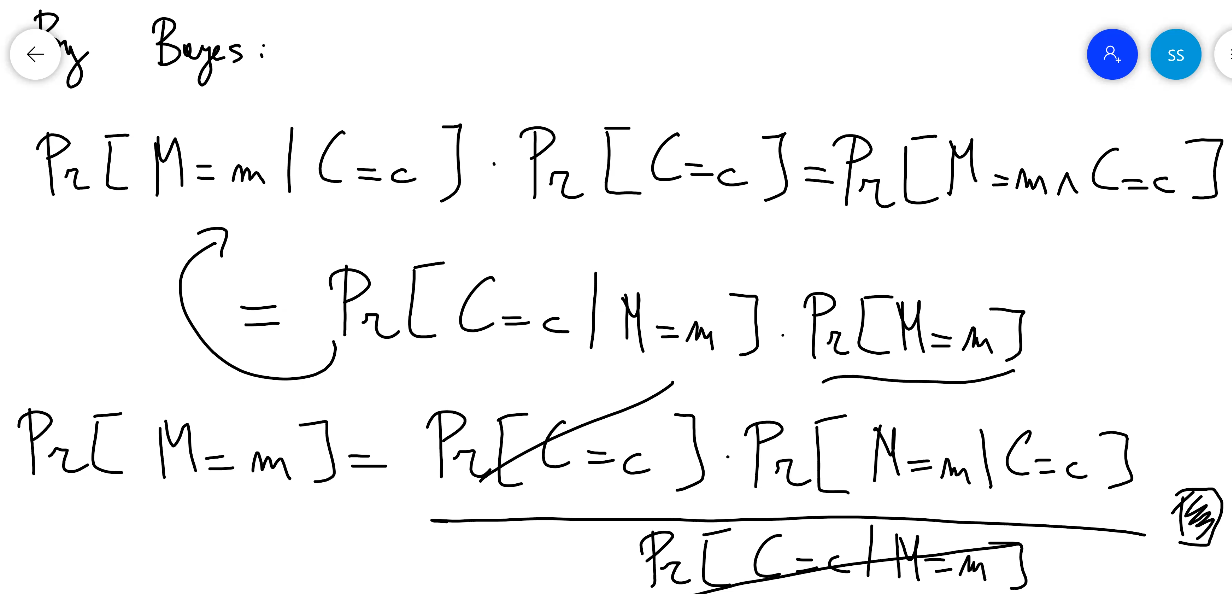 By Bayes:
SS
Pr[M=m | C=c] · Pr[C=c] = Pr[M=m ∧ C=c]
= Pr[C=c | M=m] · Pr[M=m]
Pr[M=m] = Pr[C=c] · Pr[M=m | C=c]
Pr[C=c | M=m]